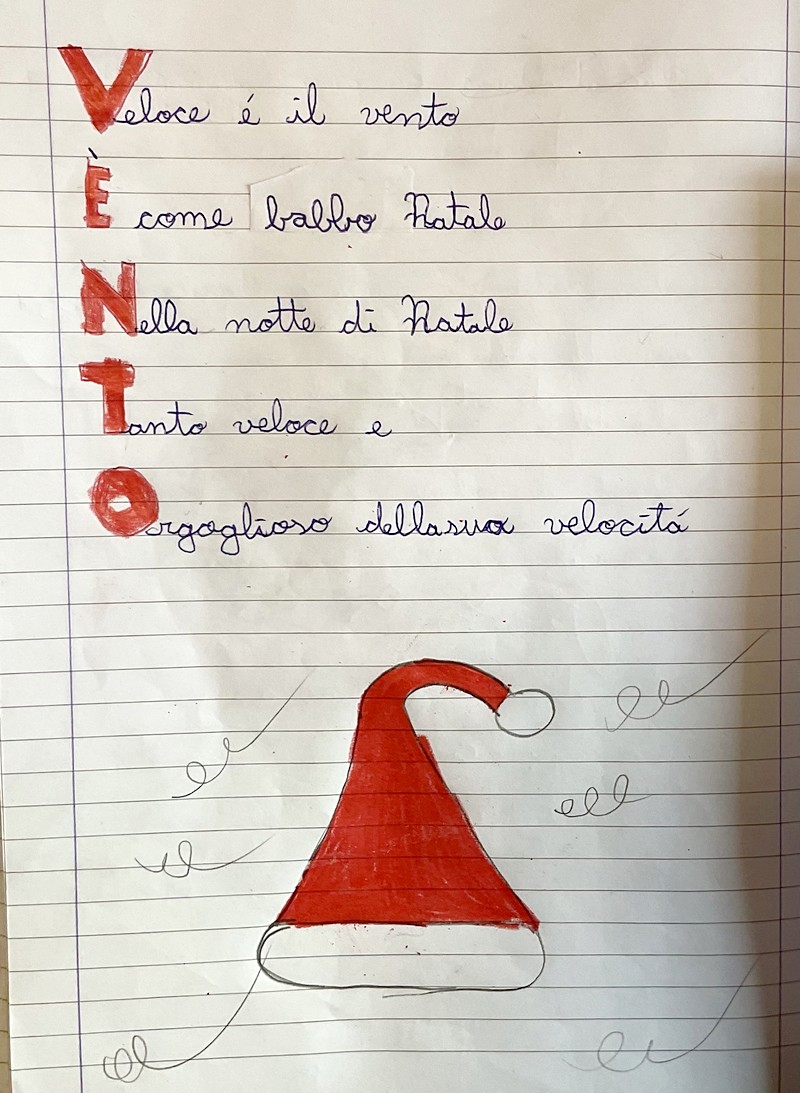 Veloce é il vento
È come babbo Natale
Nella notte di Natale
Tanto veloce e
Orgoglioso dellasua velocitá